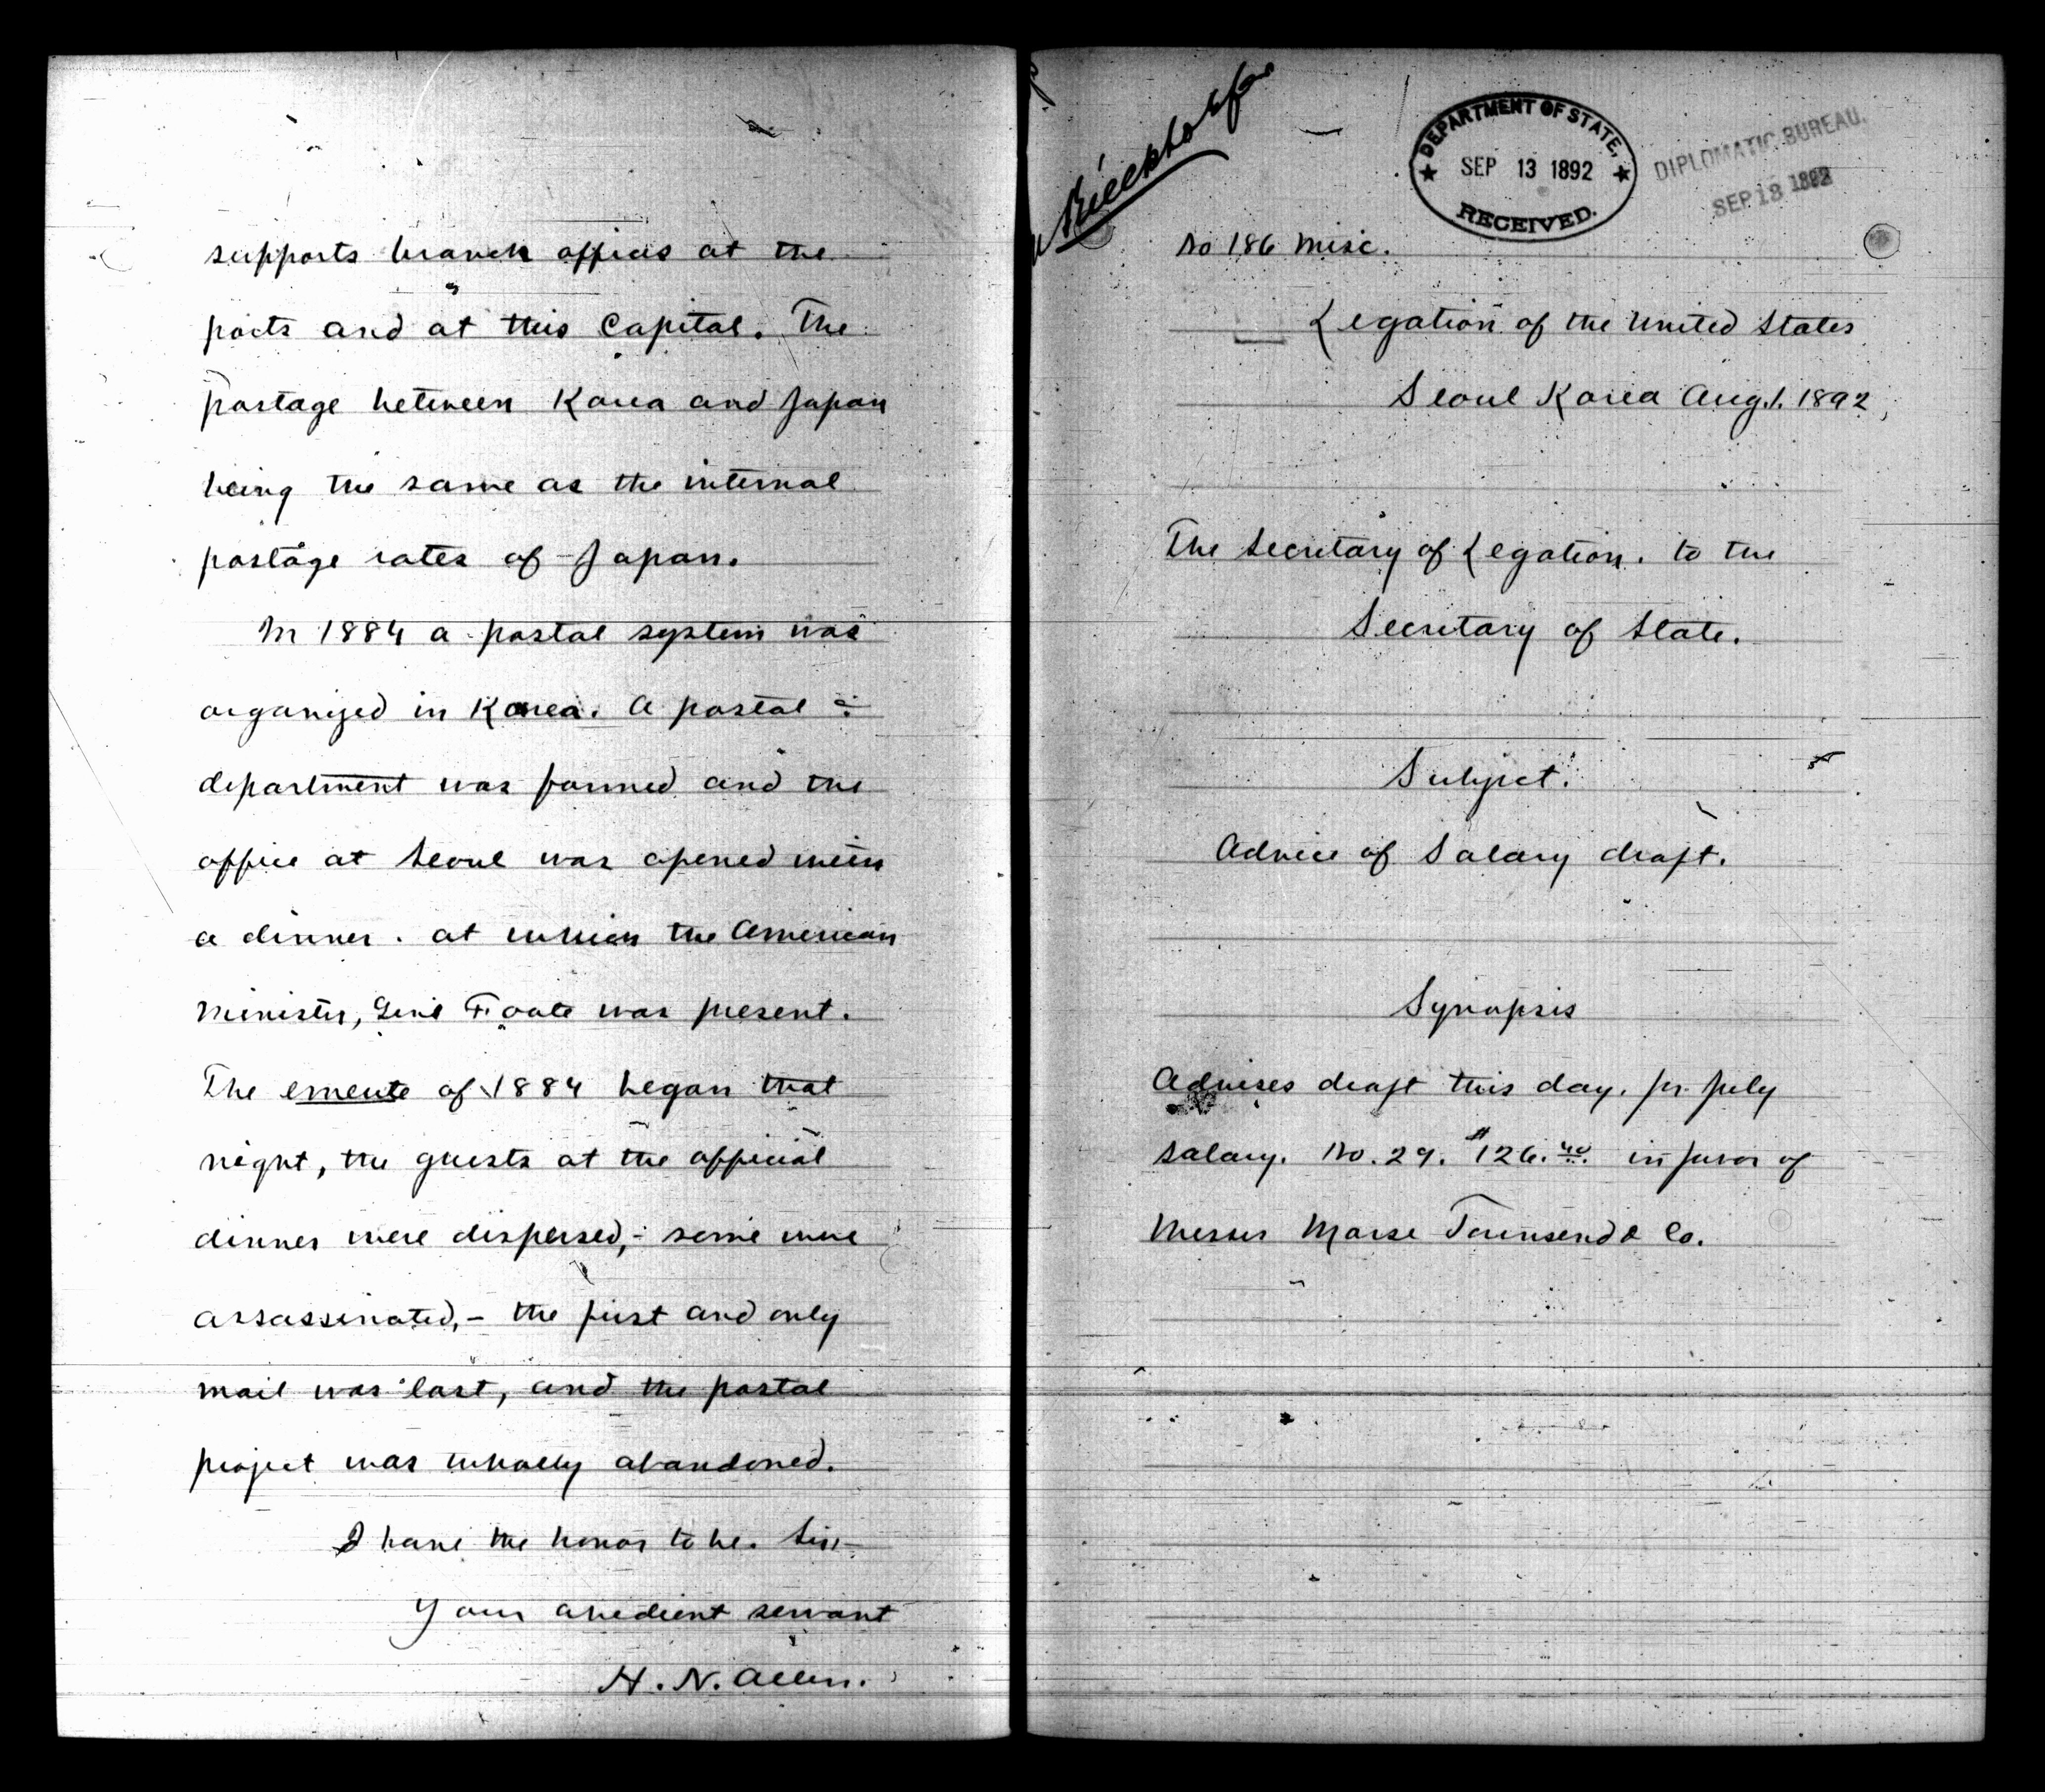 supports branch offices at the
ports and at this Capital. The
postage between Korea and Japan
being the same as the internal
postage rates of Japan.
In 1884 a postal system was
organized in Korea. A postal
department was formed and the
office at Seoul was opened with
a dinner. at which the American
Minister, Genl Foote was present.
The emeute of 1884 began that
night, the guests at the official
dinner were dispersed,- some were
assassinated,- the first and only
mail was lost, and the postal
project was wholly abandoned.
I have the honor to be. Sir,-
Your obedient servant
H. N. Allen.
DEPARTMENT OF STATE,
SEP 13 1892
RECEIVED.
DIPLOMATIC BUREAU.
SEP 13 1892
No 186 Misc.
Legation of the United States
Seoul Korea Aug. 1. 1892,
The Secretary of Legation. to the
Secretary of State.
Subject.
Advice of Salary draft.
Synopsis
Advises draft this day. for July
salary. No. 29. $126.40. in favor of
Messrs Morse Townsend & Co.